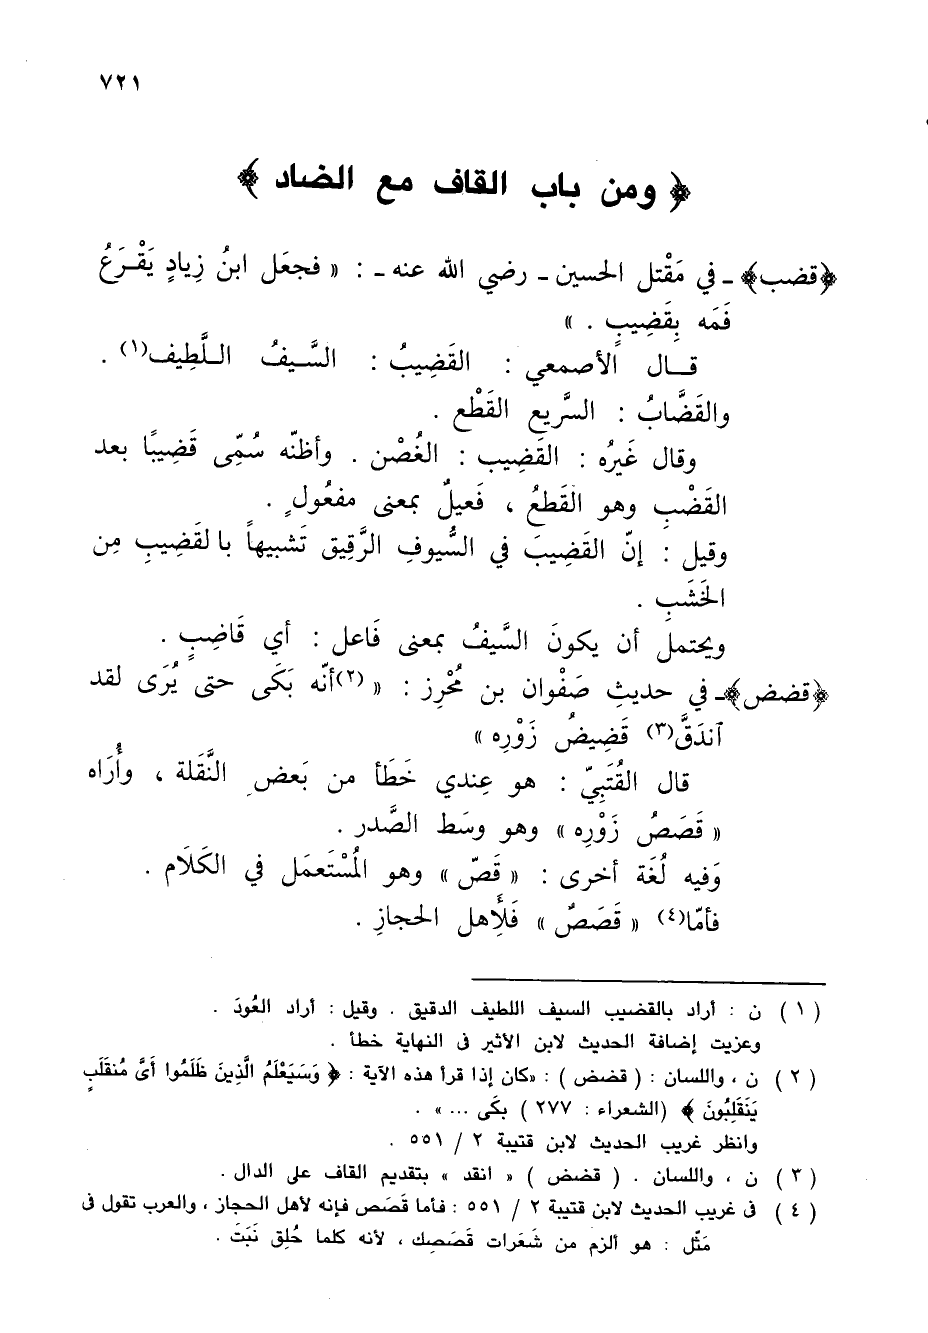 ٧٢١
﴿ ومن باب القاف مع الضاد ﴾
﴿قضب﴾ ـ في مَقْتل الحسين ـ رضي الله عنه ـ : « فجعَل ابنُ زِيادٍ يَقْرَعُ
فَمَه بِقَضِيبٍ . »
قـال الأصمعي : القَضِيبُ : السَّيفُ اللَّطِيف(١) .
والقَضَّابُ : السَّريع القَطْع .
وقال غَيرُه : القَضِيب : الغُصْن . وأظنّه سُمِّى قَضِيبًا بعد
القَضْبِ وهو القَطعُ ، فَعيلٌ بمعنى مفعُولٍ .
وقيل : إنّ القَضِيبَ في السُّيوفِ الرَّقِيق تَشبيهاً بالقَضِيبِ مِن
الخَشَبِ .
ويحتمل أن يكونَ السَّيفُ بمعنى فَاعل : أي قَاضِبٍ .
﴿قضض﴾ـ في حديثِ صَفْوان بن مُحْرِز : « (٢)أنّه بَكَى حتى يُرَى لقد
آندَقَّ(٣) قَضِيضُ زَوْرِه »
قال القُتَبِيّ : هو عِندي خَطَأ من بَعض النَّقلة ، وأُرَاه
« قَصَصُ زَوْرِه » وهو وسَط الصَّدر .
وَفيه لُغَة أخرى : « قَصّ » وهو المُسْتَعمَل في الكَلَام .
فأمّا(٤) « قَصَصٌ » فَلأَهل الحجازِ .
(١) ن : أراد بالقضيب السيف اللطيف الدقيق . وقيل : أراد العُودَ .
وعزيت إضافة الحديث لابن الأثير فى النهاية خطأ .
(٢) ن ، واللسان : ( قضض ) : «كان إذا قرأ هذه الآية : ﴿ وَسَيَعْلَمُ الَّذِينَ ظَلَمُوا أَىَّ مُنقَلَبٍ
يَنقَلِبُونَ ﴾ (الشعراء : ٢٧٧ ) بكَى ... » .
وانظر غريب الحديث لابن قتيبة ٢ / ٥٥١ .
(٣) ن ، واللسان . ( قضض ) « انقد » بتقديم القاف على الدال .
(٤) فى غريب الحديث لابن قتيبة ٢ / ٥٥١ : فأما قَصَص فإنه لأهل الحجاز ، والعرب تقول فى
مَثَل : هو ألزم من شَعَرات قَصَصِك ، لأنه كلما حُلِق نَبَتَ .